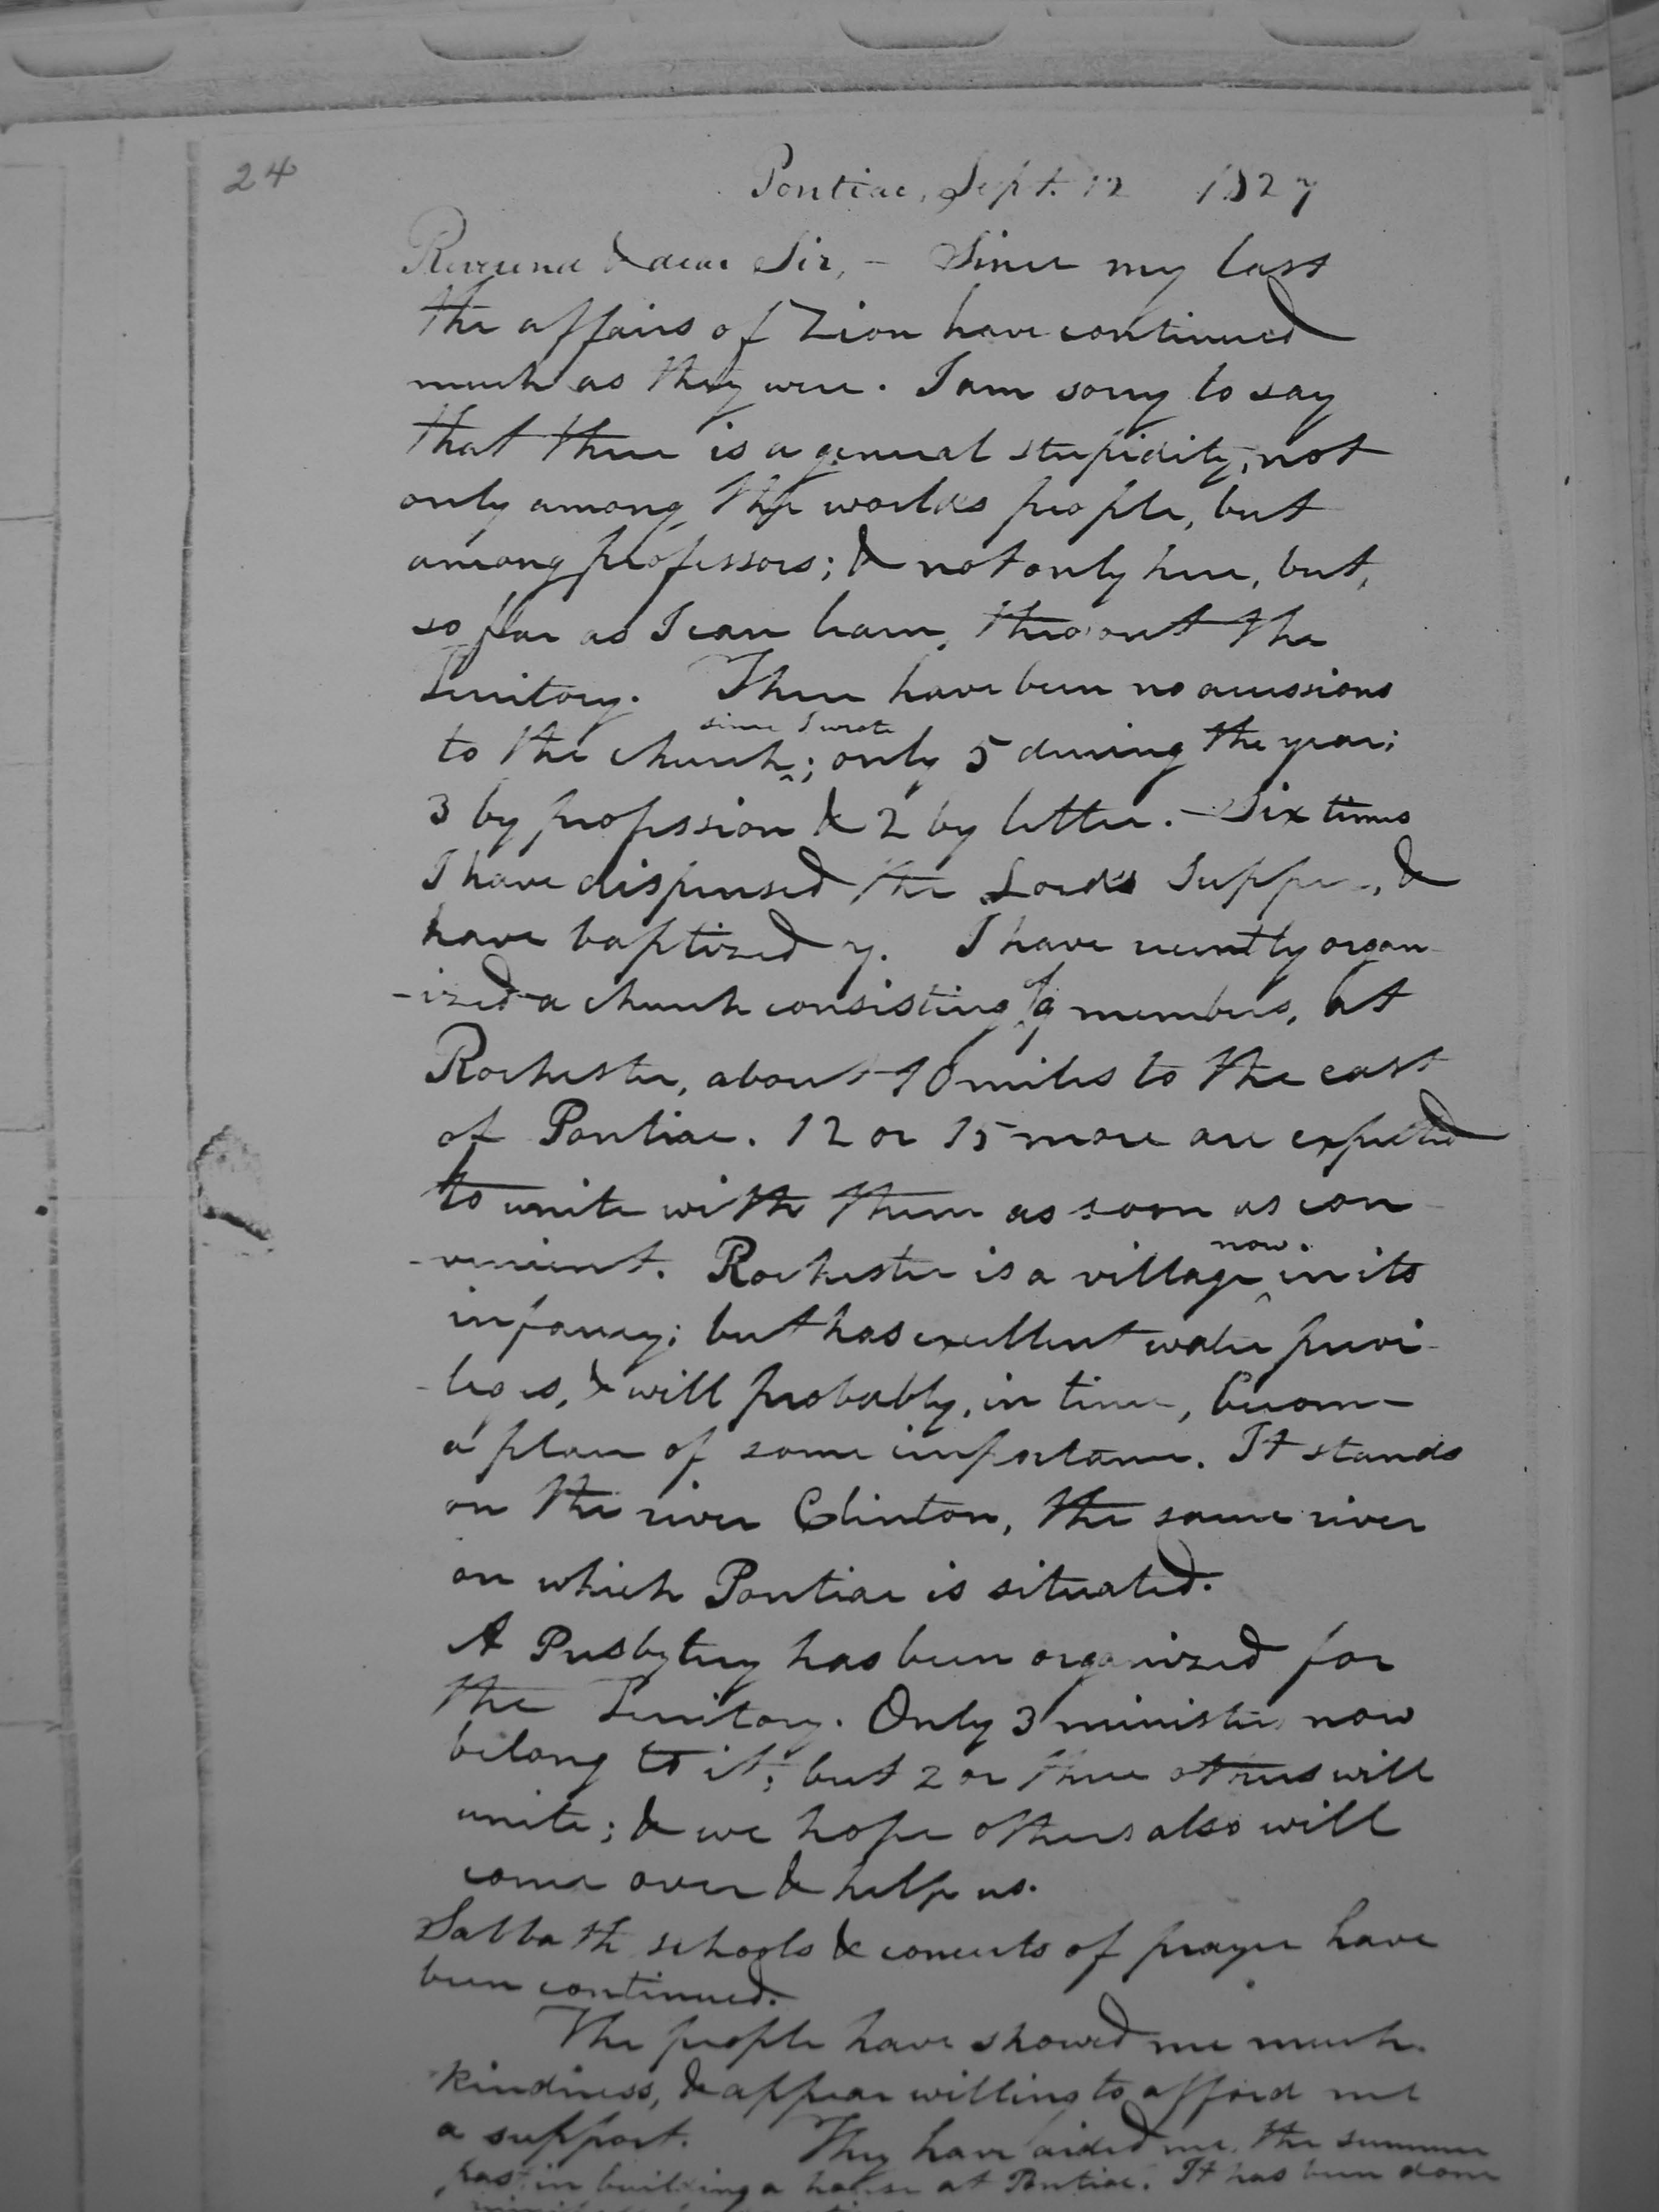 24
Pontiac, Sept. 12 1827
Reverend & dear Sir, - Since my last
the affairs of Zion have continued
much as they were. I am sorry to say
that there is a general stupidity, not
only among the worlds people, but
among professors; & not only here, but,
so far as I can learn, throout the
Territory. There have been no accessions
since I wrote
to the church^; only 5 during the year;
3 by profession & 2 by letter. - Six times
I have dispensed the Lord's Supper, &
have baptized 7. I have recently organ-
-ized a church consisting of 9 members, at
Rochester, about 10 miles to the east
of Pontiac. 12 or 15 more are expected
to unite with them as soon as con-
-venient. Rochester is a village^ in its
now.
infancy; but has excellent water privi-
-leges, & will probably, in time, become
a place of some importance. It stands
on the river Clinton, the same river
on which Pontiac is situated.
A Presbytery has been organized for
the Territory. Only 3 ministers now
belong to it; but 2 or three others will
unite; & we hope others also will
come over & help us.
Sabbath schools & concerts of prayer have
been continued.
The people have showed me much
kindness, & appear willing to afford me
a support. They have aided me the summer
past in building a house at Pontiac. It has been done